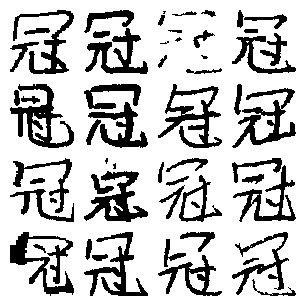 冠冠冠冠
冠冠冠冠
冠冠冠冠
冠冠冠冠